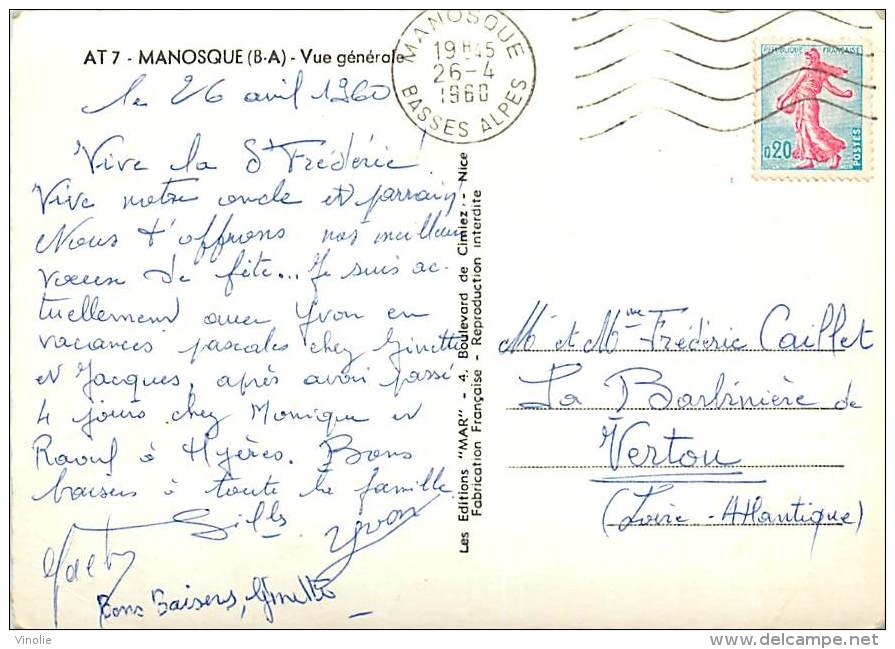 AT 7 - MANOSQUE (B-A) - Vue générale
le 26 avril 1960
Vive la St Frédéric!
Vive notre oncle et parrain!
Nous t'offrons nos meilleurs
voeux de fête... Je suis ac-
tuellement avec Yvon en
vacances pascales chez Ginette
et Jacques, après avoir passé
4 jours chez Monique et
Raoul à Hyères. Bons
baisers à toute la famille
Gilles
Yvon
Bons Baisers, Ginette
Les Editions "MAR" - 4. Boulevard de Cimiez - Nice
Fabrication Française - Reproduction interdite
MANOSQUE
19H45
26-4
1960
BASSES ALPES
REPUBLIQUE FRANÇAISE
0,20
POSTES
Mr et Mme Frédéric Caillet
La Barbinière de
Vertou
(Loire-Atlantique)
Vinolie
delcampe.net